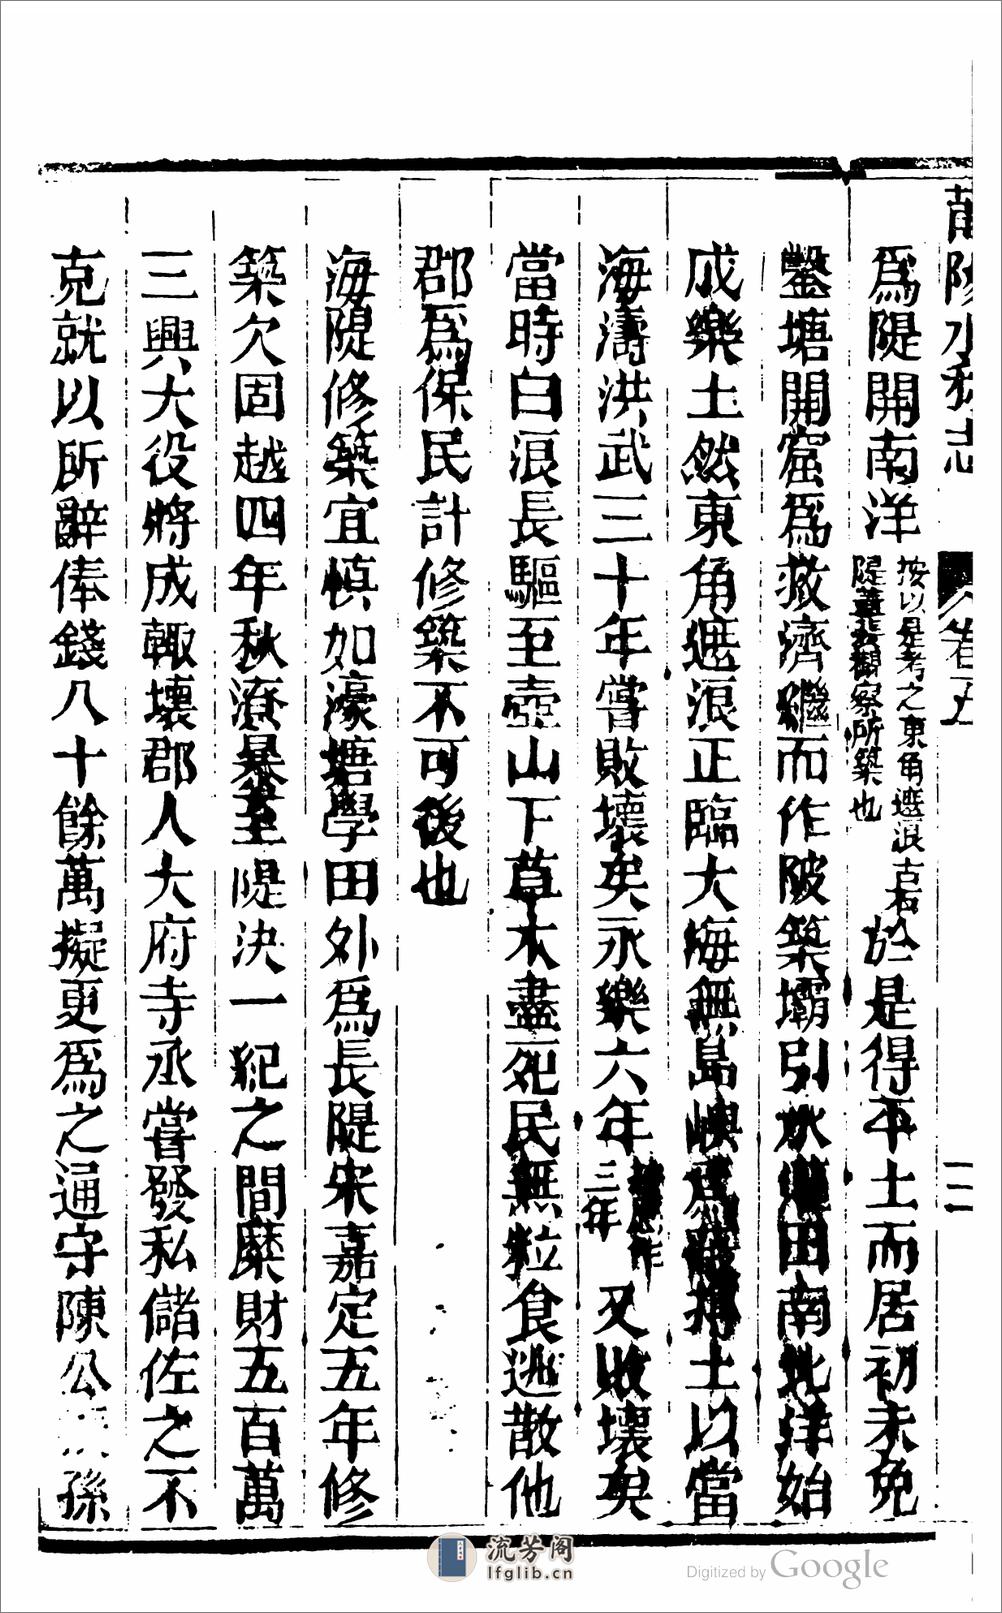 莆陽水利志 卷五 二
爲隄開南洋按以是考之東角遮浪古石隄蓋裴觀察所築也於是得平土而居初未免
鑿塘開窟爲救濟繼而作陂築壩引水灌田南北洋始
成樂土然東角遮浪正臨大海無島嶼爲藩捍土以當
海濤洪武三十年嘗敗壞矣永樂六年作三年又敗壞矣
當時白浪長驅至壺山下草木盡死民無粒食逃散他
郡爲保民計修築不可後也
海隄修築宜慎如濠塘學田外爲長隄宋嘉定五年修
築欠固越四年秋潦暴至隄決一紀之間糜財五百萬
三興大役將成輒壞郡人大府寺丞嘗發私儲佐之不
克就以所辭俸錢八十餘萬擬更爲之通守陳公孫
流芳阁
lfglib.cn
Digitized by Google